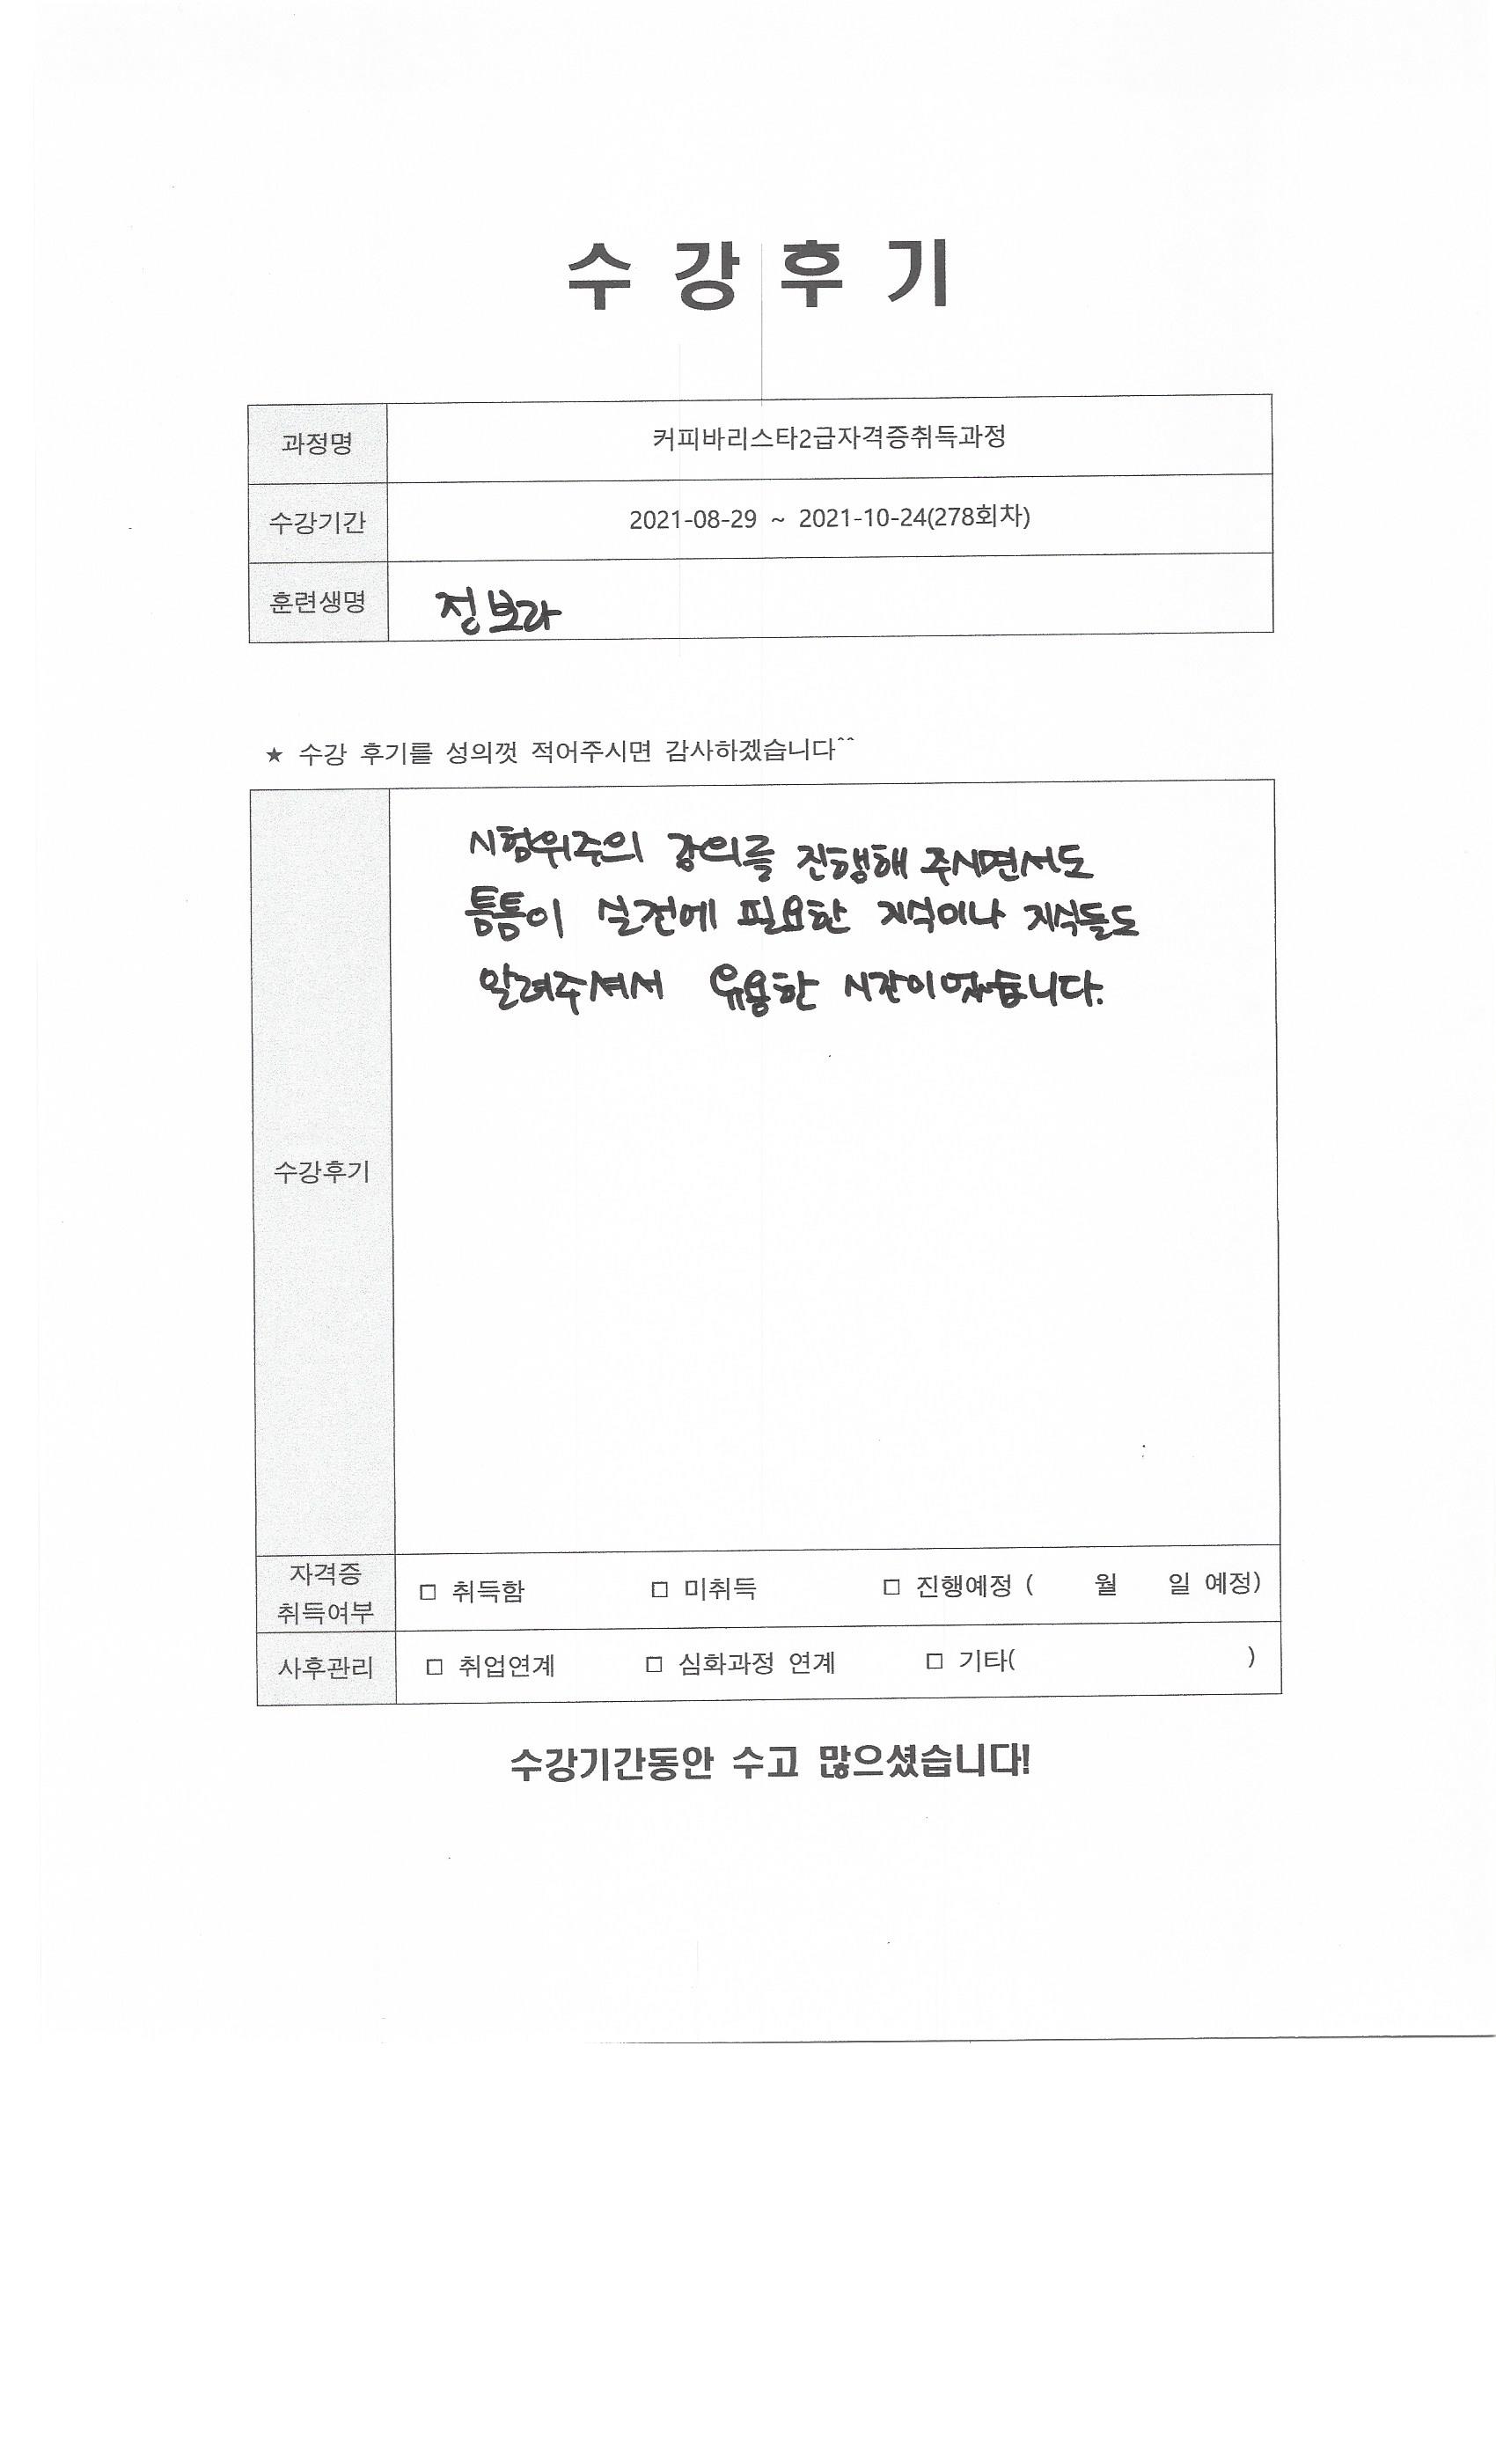 수 강 후 기
과정명 커피바리스타2급자격증취득과정
수강기간 2021-08-29 ~ 2021-10-24(278회차)
훈련생명 정보라
★ 수강 후기를 성의껏 적어주시면 감사하겠습니다^^
시험위주의 강의를 진행해 주시면서도
틈틈이 실전에 필요한 지식이나 지식들도
알려주셔서 유용한 시간이었습니다.
수강후기
자격증
취득여부
□ 취득함 □ 미취득 □ 진행예정 ( 월 일 예정)
사후관리 □ 취업연계 □ 심화과정 연계 □ 기타( )
수강기간동안 수고 많으셨습니다!